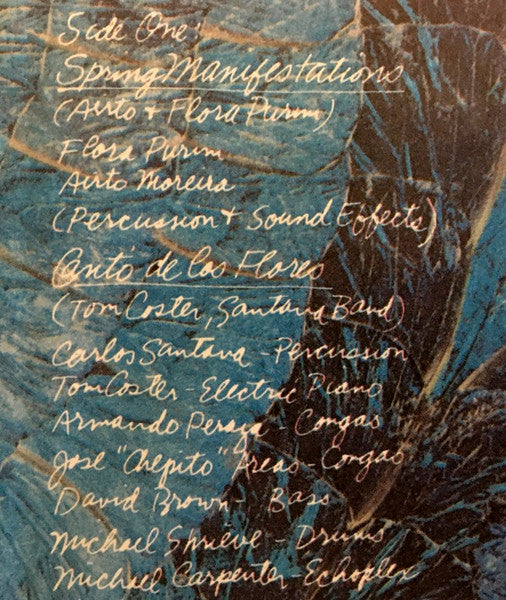 Side One:
Spring Manifestations
(Airto + Flora Purim)
Flora Purim
Airto Moreira
(Percussion + Sound Effects)
Canto de los Flores
(Tom Coster, Santana Band)
Carlos Santana - Percussion
Tom Coster - Electric Piano
Armando Peraza - Congas
José "Chepito" Areas - Congas
David Brown - Bass
Michael Shrieve - Drums
Michael Carpenter - Echoplex